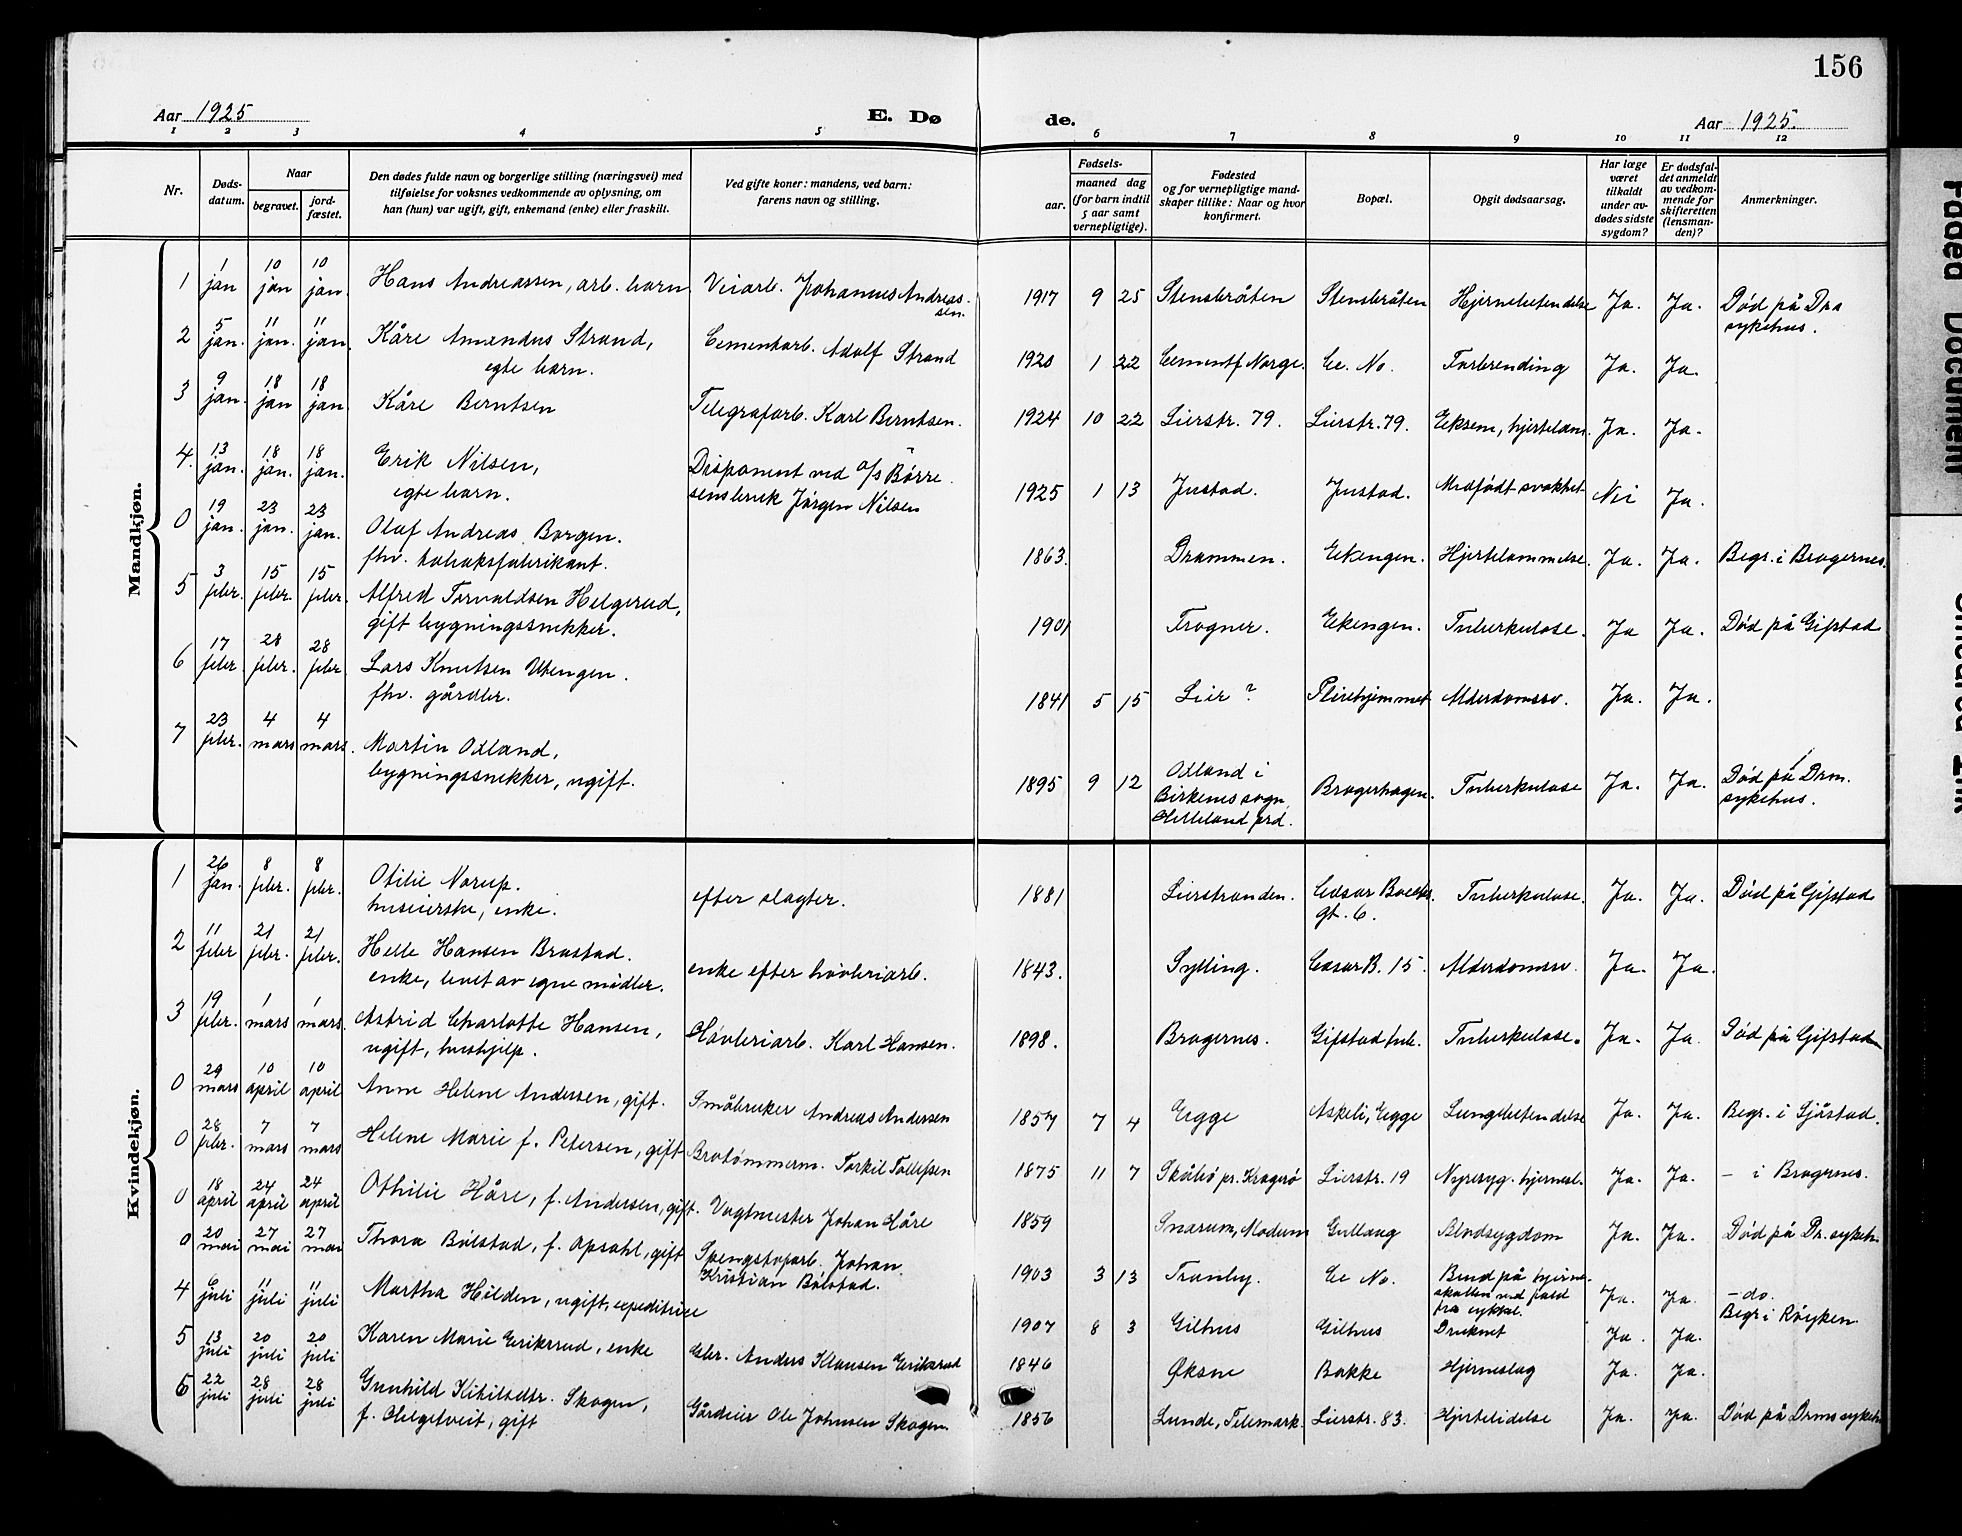 156
Aar 1925 E. Dø de. Aar 1925.
1 2 3 4 5 6 7 8 9 10 11 12
Nr. Dødsdatum. Naar begravet. jordfæstet. Den dødes fulde navn og borgerlige stilling (næringsvei) med tilføielse for voksnes vedkommende av oplysning, om han (hun) var ugift, gift, enkemand (enke) eller fraskilt. Ved gifte koner: mandens, ved barn: farens navn og stilling. Fødsels- aar. maaned dag (for barn indtil 5 aar samt vernepligtige). Fødested og for vernepligtige mandskaper tillike: Naar og hvor konfirmert. Bopæl. Opgit dødsaarsag. Har læge været tilkaldt under avdødes sidste sygdom? Er dødsfaldet anmeldt av vedkommende for skifteretten (lensmanden)? Anmerkninger.
Mandkjøn.
1 1 jan 10 jan 10 jan. Hans Andreassen, arb. barn Veiarb. Johannes Andreassen. 1917 9 25 Stensbråten Stensbråten Hjernebetendelse Ja. Ja. Død på Dra sykehus.
2 5 jan. 11 jan. 11 jan. Kåre Amendus Strand, egte barn. Cementarb. Adolf Strand 1920 1 22 Cementf. Norge. Ce. No. Forbrending Ja. Ja.
3 9 jan. 18 jan 18 jan. Kåre Berntsen Telegrafarb. Karl Berntsen. 1924 10 22 Lierstr. 79. Lierstr. 79. Eksem, hjertelam. Ja. Ja.
4. 13 jan. 18 jan. 18 jan. Erik Nilsen, egte barn. Disponent ved a/s Børresensbruk Jørgen Nilsen 1925 1 13 Justad. Justad. Medfødt svakhet Nei Ja.
0 19 jan. 23 jan. 23 jan. Olaf Andreas Borgen. fhv. tobaksfabrikant. 1863. Drammen. Eekengen. Hjertelammelse. Ja. Ja. Begr. i Bragernes.
5 3 febr. 15 febr. 15 febr. Alfred Torvaldsen Helgerud, gift bygningssnekker. 1901 Frogner. Eekengen. Tuberkulose. Ja Ja. Død på Gifstad
6 17 febr. 28 febr. 28 febr. Lars Knutsen Utengen. fhv. gårdbr. 1841 5 15 Lier? Pleiehjemmet Alderdomssv. Ja. Ja.
7 23 febr. 4 mars 4 mars. Martin Odland, bygningssnekker, ugift. 1895 9 12 Odland i Birkenes sogn, prd. Bragerhagen. Tuberkulose Ja. Ja. Død på Drm. sykehus.
Kvindekjøn.
1 26 jan. 8 febr. 8 febr. Otilie Norup. huseierske, enke. efter slagter. 1881 Lierstranden. Cæsar Boecks. gt. 6. Tuberkulose. Ja. Ja. Død på Gifstad
2 11 febr 21 febr. 21 febr. Helle Hansen Brastad. enke, levet av egne midler. enke efter høvleriarb. 1843. Sylling. Cæsar B. 15. Alderdomssv. Ja. Ja.
3 19 febr. 1 mars 1 mars. Astrid Charlotte Hansen, ugift, hushjelp. Høvleriarb. Karl Hansen. 1898. Bragernes. Gifstad tub. Tuberkulose. Ja. Ja. Død på Gifstad
0 29 mars 10 april 10 april Anne Helene Andersen, gift. Småbruker Andreas Andersen 1857 7 4 Egge Askeli, Egge Lungebetendelse Ja. Ja. Begr. i Sjåstad.
0 28 febr. 7 mars 7 mars Helene Marie f. Petersen, gift Brotømmerm. Torkil Tollefsen 1875 11 7 Skåtø pr. Kragerø Lierstr. 19 Nyresyg. hjernesl. Ja. Ja. – i Bragernes.
0 18 april 24 april 24 april Othilie Håre, f. Andersen, gift. Vagtmester Johan Håre 1859 Snarum, Modum Gullaug Blodsygdom Ja. Ja. Død på Dr. sykeh.
0 20 mai 27 mai 27 mai Thora Bølstad, f. Opsahl, gift Spengstofarb. Johan Kristian Bølstad. 1903 3 13 Tranby. Ce No. Brud på hjerneskallen ved fald fra sykkel. Ja. Ja. – do. Begr. i Røyken.
4 6 juli 11 juli 11 juli Martha Hilden, ugift, expeditrice 1907 8 3 Gilhus Gilhus Druknet Ja. Ja.
5 13 juli 20 juli 20 juli Karen Marie Eriksrud, enke Gbr. Anders Klausen Eriksrud 1846 Øksne Bakke Hjerneslag Ja. Ja.
6 22 juli 28 juli 28 juli Gunhild Kittilsdtr. Skogen, f. Helgetveit, gift Gårdeier Ole Johnsen Skogen. 1856 Lunde, Telemark. Lierstr. 83. Hjertelidelse Ja. Ja. Død på Drms sykeh.
Faded Document